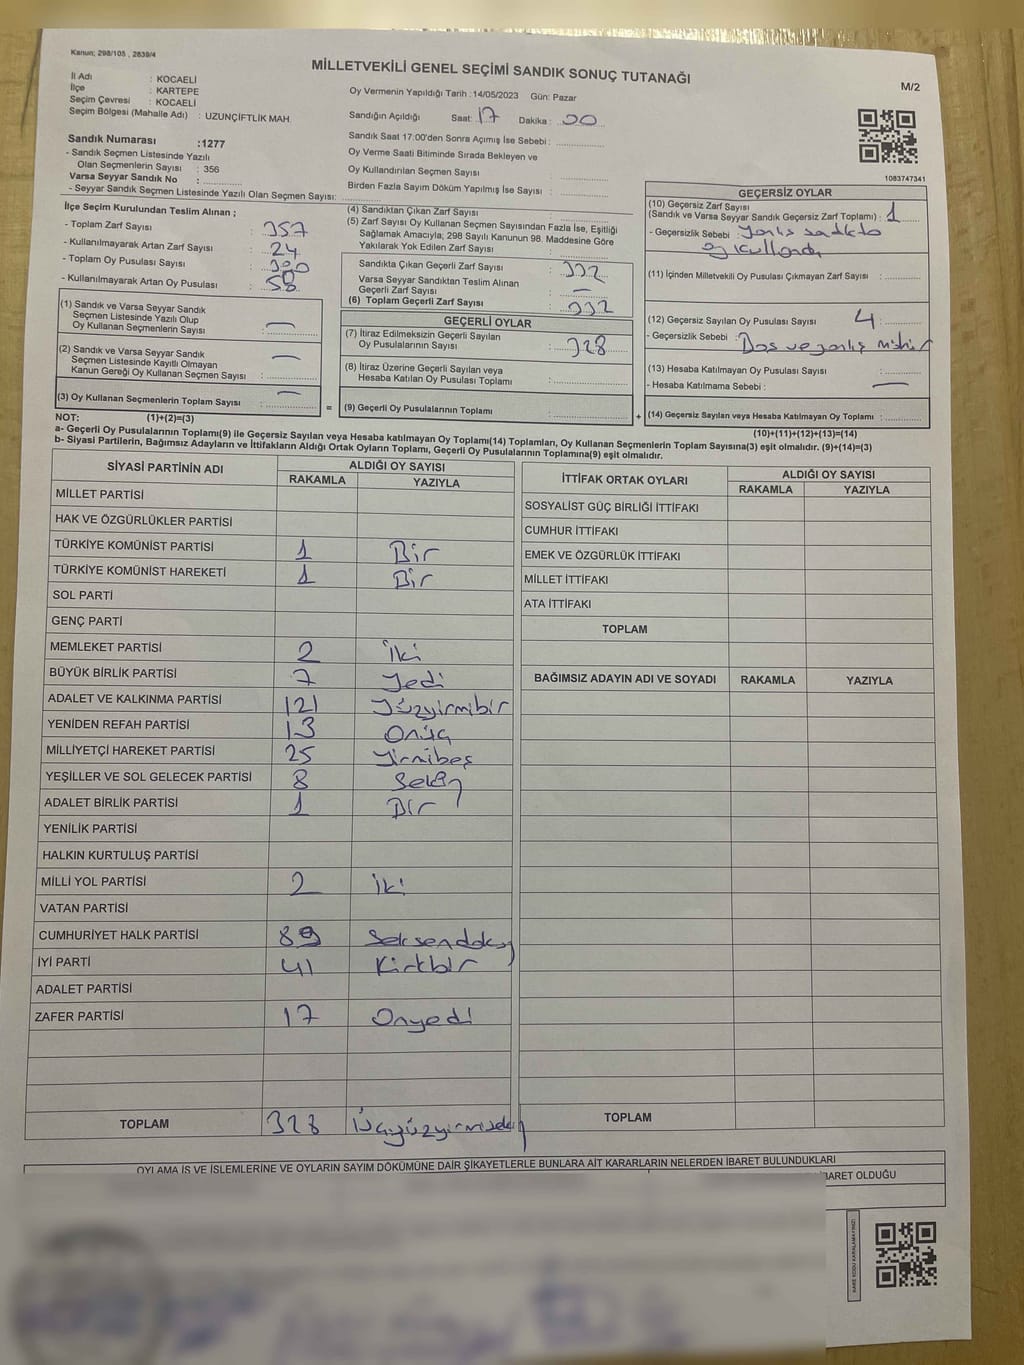 Kanun; 298/105 , 2839/4
MİLLETVEKİLİ GENEL SEÇİMİ SANDIK SONUÇ TUTANAĞI
M/2
İl Adı : KOCAELİ
İlçe : KARTEPE
Seçim Çevresi : KOCAELİ
Seçim Bölgesi (Mahalle Adı) : UZUNÇİFTLİK MAH.
Oy Vermenin Yapıldığı Tarih :14/05/2023 Gün: Pazar
Sandığın Açıldığı Saat: 17 Dakika : 00
Sandık Saat 17:00'den Sonra Açımış İse Sebebi :
Oy Verme Saati Bitiminde Sırada Bekleyen ve
Oy Kullandırılan Seçmen Sayısı
Birden Fazla Sayım Döküm Yapılmış İse Sayısı :
Sandık Numarası :1277
- Sandık Seçmen Listesinde Yazılı
Olan Seçmenlerin Sayısı : 356
Varsa Seyyar Sandık No :
- Seyyar Sandık Seçmen Listesinde Yazılı Olan Seçmen Sayısı:
İlçe Seçim Kurulundan Teslim Alınan ;
- Toplam Zarf Sayısı : 357
- Kullanılmayarak Artan Zarf Sayısı : 24
- Toplam Oy Pusulası Sayısı :
- Kullanılmayarak Artan Oy Pusulası : 58
(1) Sandık ve Varsa Seyyar Sandık
Seçmen Listesinde Yazılı Olup
Oy Kullanan Seçmenlerin Sayısı : —
(2) Sandık ve Varsa Seyyar Sandık
Seçmen Listesinde Kayıtlı Olmayan
Kanun Gereği Oy Kullanan Seçmen Sayısı : —
(3) Oy Kullanan Seçmenlerin Toplam Sayısı : —
(1)+(2)=(3)
(4) Sandıktan Çıkan Zarf Sayısı
(5) Zarf Sayısı Oy Kullanan Seçmen Sayısından Fazla İse, Eşitliği
Sağlamak Amacıyla; 298 Sayılı Kanunun 98. Maddesine Göre
Yakılarak Yok Edilen Zarf Sayısı :
Sandıkta Çıkan Geçerli Zarf Sayısı : 332
Varsa Seyyar Sandıktan Teslim Alınan
Geçerli Zarf Sayısı : —
(6) Toplam Geçerli Zarf Sayısı : 332
GEÇERLİ OYLAR
(7) İtiraz Edilmeksizin Geçerli Sayılan
Oy Pusulalarının Sayısı : 328
(8) İtiraz Üzerine Geçerli Sayılan veya
Hesaba Katılan Oy Pusulası Toplamı :
= (9) Geçerli Oy Pusulalarının Toplamı : +
1083747341
GEÇERSİZ OYLAR
(10) Geçersiz Zarf Sayısı
(Sandık ve Varsa Seyyar Sandık Geçersiz Zarf Toplamı) : 1
- Geçersizlik Sebebi : Yanlış sandıkta
oy kullandı
(11) İçinden Milletvekili Oy Pusulası Çıkmayan Zarf Sayısı :
(12) Geçersiz Sayılan Oy Pusulası Sayısı : 4
- Geçersizlik Sebebi : Boş ve yanlış mühür
(13) Hesaba Katılmayan Oy Pusulası Sayısı :
- Hesaba Katılmama Sebebi : —
(14) Geçersiz Sayılan veya Hesaba Katılmayan Oy Toplamı :
(10)+(11)+(12)+(13)=(14)
NOT:
a- Geçerli Oy Pusulalarının Toplamı(9) ile Geçersiz Sayılan veya Hesaba katılmayan Oy Toplamı(14) Toplamları, Oy Kullanan Seçmenlerin Toplam Sayısına(3) eşit olmalıdır. (9)+(14)=(3)
b- Siyasi Partilerin, Bağımsız Adayların ve İttifakların Aldığı Ortak Oyların Toplamı, Geçerli Oy Pusulalarının Toplamına(9) eşit olmalıdır.
SİYASİ PARTİNİN ADI ALDIĞI OY SAYISI
RAKAMLA YAZIYLA
MİLLET PARTİSİ
HAK VE ÖZGÜRLÜKLER PARTİSİ
TÜRKİYE KOMÜNİST PARTİSİ 1 Bir
TÜRKİYE KOMÜNİST HAREKETİ 1 Bir
SOL PARTİ
GENÇ PARTİ
MEMLEKET PARTİSİ 2 İki
BÜYÜK BİRLİK PARTİSİ 7 Yedi
ADALET VE KALKINMA PARTİSİ 121 Yüzyirmibir
YENİDEN REFAH PARTİSİ 13 Onüç
MİLLİYETÇİ HAREKET PARTİSİ 25 Yirmibeş
YEŞİLLER VE SOL GELECEK PARTİSİ 8 Sekiz
ADALET BİRLİK PARTİSİ 1 Bir
YENİLİK PARTİSİ
HALKIN KURTULUŞ PARTİSİ
MİLLİ YOL PARTİSİ 2 İki
VATAN PARTİSİ
CUMHURİYET HALK PARTİSİ 89 Seksendokuz
İYİ PARTİ 41 Kırkbir
ADALET PARTİSİ
ZAFER PARTİSİ 17 Onyedi
TOPLAM 328 Üçyüzyirmisekiz
İTTİFAK ORTAK OYLARI ALDIĞI OY SAYISI
RAKAMLA YAZIYLA
SOSYALİST GÜÇ BİRLİĞİ İTTİFAKI
CUMHUR İTTİFAKI
EMEK VE ÖZGÜRLÜK İTTİFAKI
MİLLET İTTİFAKI
ATA İTTİFAKI
TOPLAM
BAĞIMSIZ ADAYIN ADI VE SOYADI RAKAMLA YAZIYLA
TOPLAM
OYLAMA İŞ VE İŞLEMLERİNE VE OYLARIN SAYIM DÖKÜMÜNE DAİR ŞİKAYETLERLE BUNLARA AİT KARARLARIN NELERDEN İBARET BULUNDUKLARI
İBARET OLDUĞU
KARE KODU KARALAMAYINIZ!